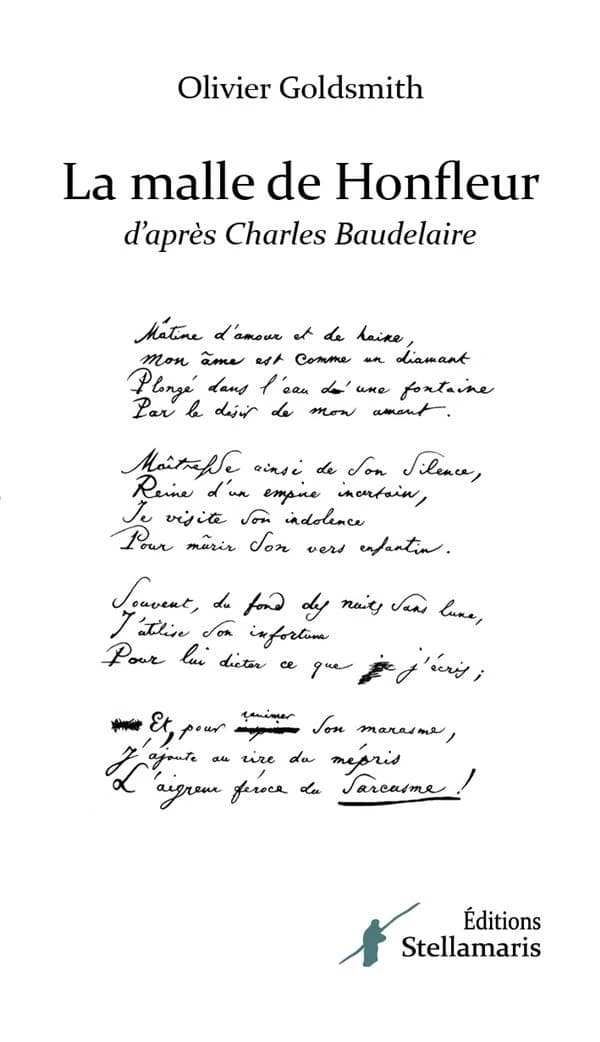 Olivier Goldsmith
La malle de Honfleur
d'après Charles Baudelaire
Mâtine d'amour et de haine,
mon âme est comme un diamant
Plongé dans l'eau d'une fontaine
Par le désir de mon amant.
Maîtresse ainsi de son silence,
Reine d'un empire incertain,
Je visite son indolence
Pour mûrir son vers enfantin.
Souvent, du fond des nuits sans lune,
J'utilise son infortune
Pour lui dicter ce que j'écris;
Et, pour ranimer son marasme,
J'ajoute au rire du mépris
L'aigreur féroce du Sarcasme!
Éditions
Stellamaris